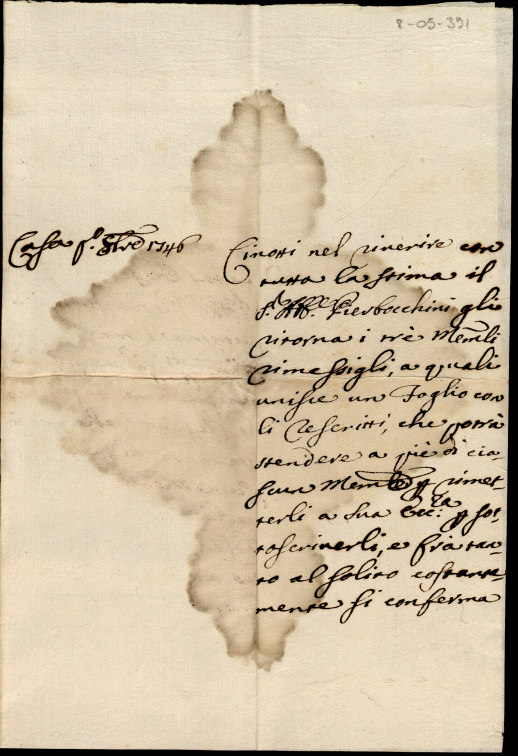 8-05-391
Casa p.º 8bre 1746
Cinotti nel riverire con
tutta la stima il
Sr. Pierbocchini gli
ritorna i trè Memli
rimessigli, a quali
unisce un Foglio con
li Rescritti, che potrà
stendere a piè di cia
scun Memle p rimet-
terli a Sua Ecc:za p sot-
toscriverli, e frà tan-
to al solito costante-
mente si conferma